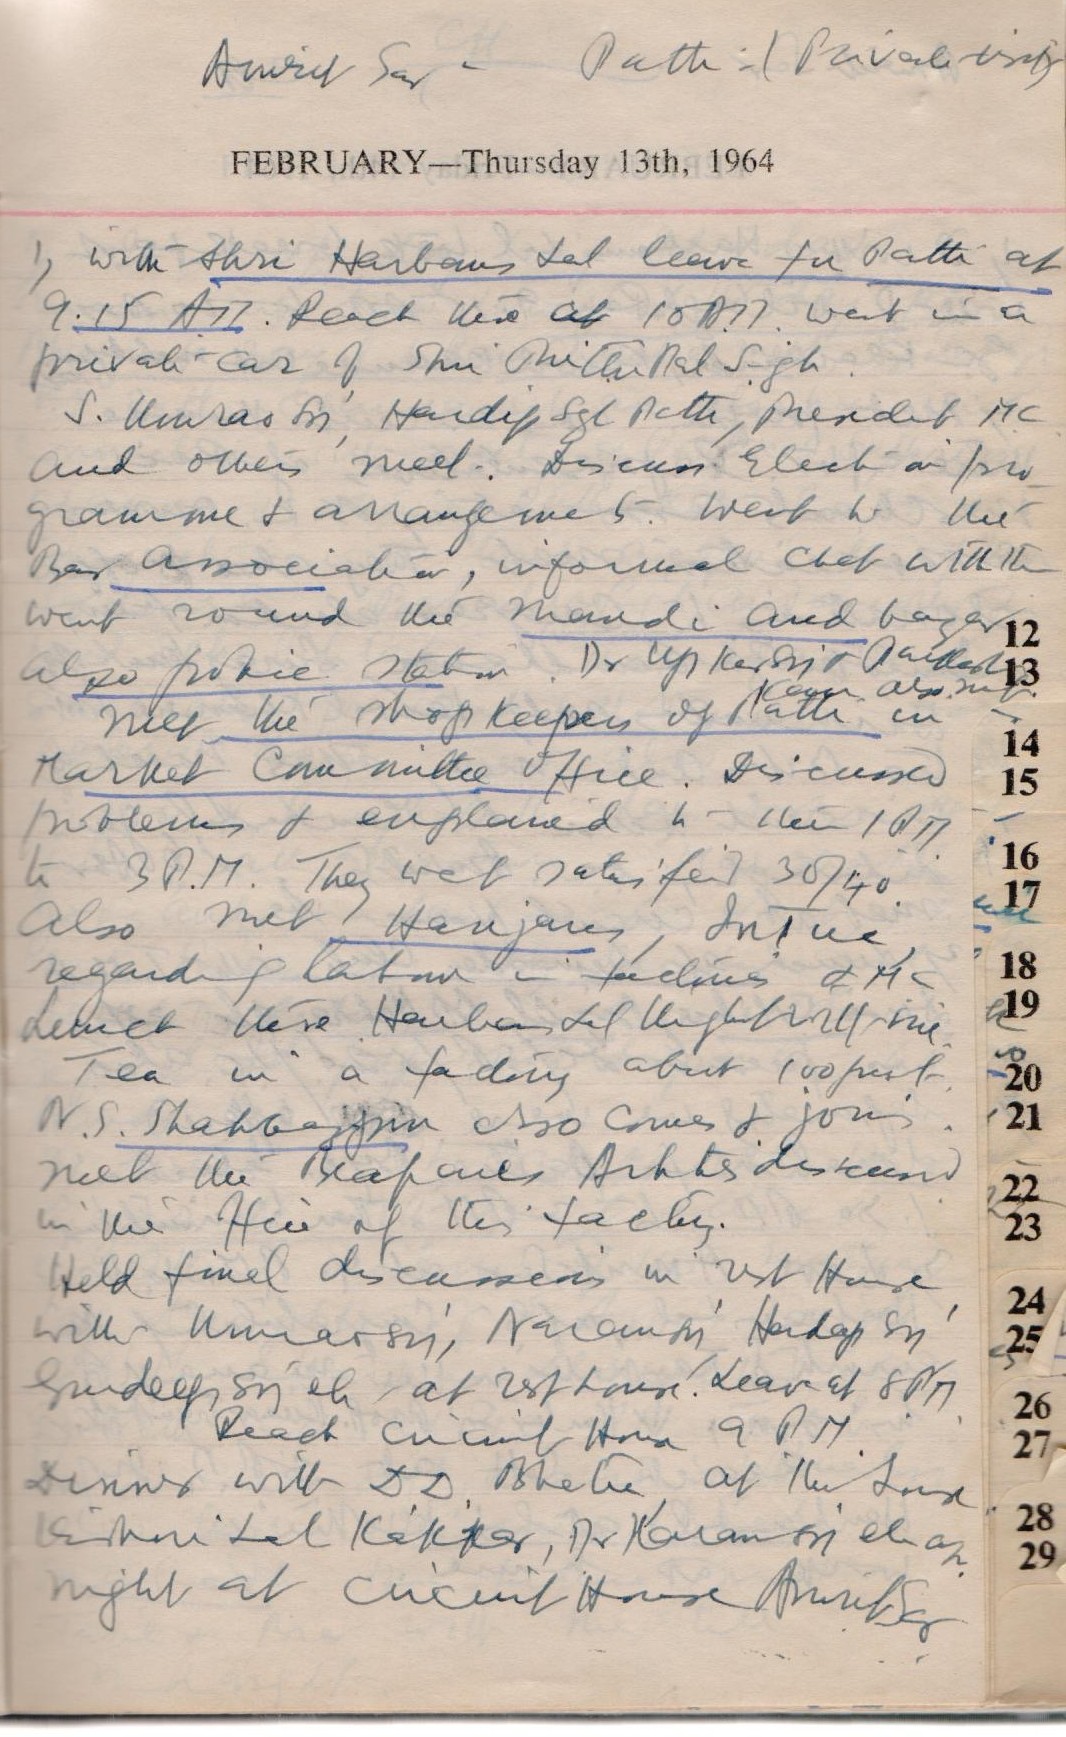 Amrit Sar - Patti :( Private visit)
FEBRUARY—Thursday 13th, 1964
I, with Shri Harbans Lal leave for Patti at
9.15 AM. Reach there at 10 AM. went in a
private car of Shri Pal Singh.
S. Umrao Sg, Hardip Sgh Patti, President MC
and others meet. Discuss Election pro
gramme & arrangements. Went to the
Bar Association, informal chat with them
went round the Mandi and bazar
also police station. Dr
Kaur also met.
Met the shopkeepers of Patti in
Market Committee Office. Discussed
problems & explained to them 1 PM
to 3 P.M. They went satisfied 30/40.
Also met Harijans, INTUC,
regarding labour in factories & MC
Lunch there Harbans Lal
Tea in a factory about 100
N.S. also comes & joins.
met the Beoparies discussed
in the office of this factory.
Held final discussions in rest House
with Umrao Sg, Narain Sg, Hardip Sg,
Gurdeep Sg etc at rest house. Leave at 8 PM
Reach Circuit House 9 P.M.
Dinner with D D. Bhatia, at the house
Kishori Lal Kakkar, Dr Karam Sg etc
night at Circuit House AmritSar
12
13
14
15
16
17
18
19
20
21
22
23
24
25
26
27
28
29